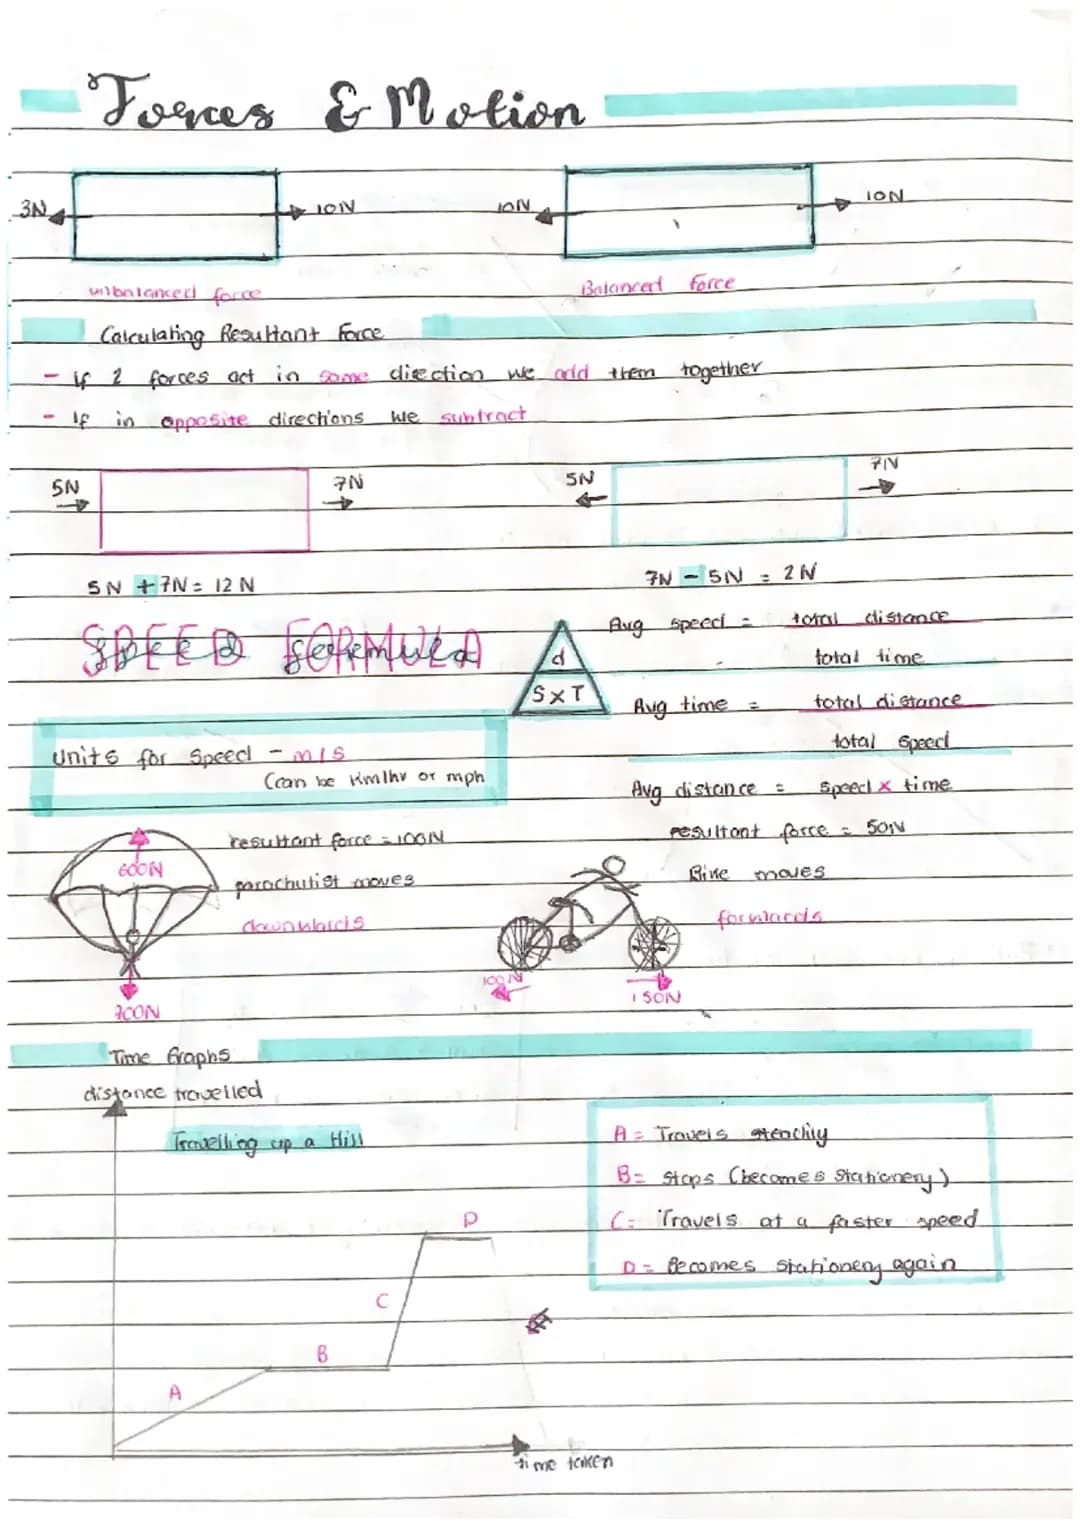 Forces & Motion
3N 10N 10N 10N
unbalanced force Balanced Force
Calculating Resultant Force
- if 2 forces act in same direction we add them together
- If in opposite directions we subtract
5N 7N 5N 7N
5N + 7N = 12N 7N - 5N = 2N
SPEED FORMULA
speed formula
d
S x T
Avg speed = total distance
total time
Avg time = total distance
total speed
Avg distance = speed x time
Units for Speed - m/s
(can be km/hr or mph
600N
700N
resultant force = 100N
parachutist moves
downwards
resultant force = 50N
Bike moves
forwards
100N
150N
Time Graphs
distance travelled
Travelling up a Hill
A
B
C
D
time taken
A = Travels steadily
B = Stops (becomes Stationery)
C = Travels at a faster speed
D = Becomes stationery again